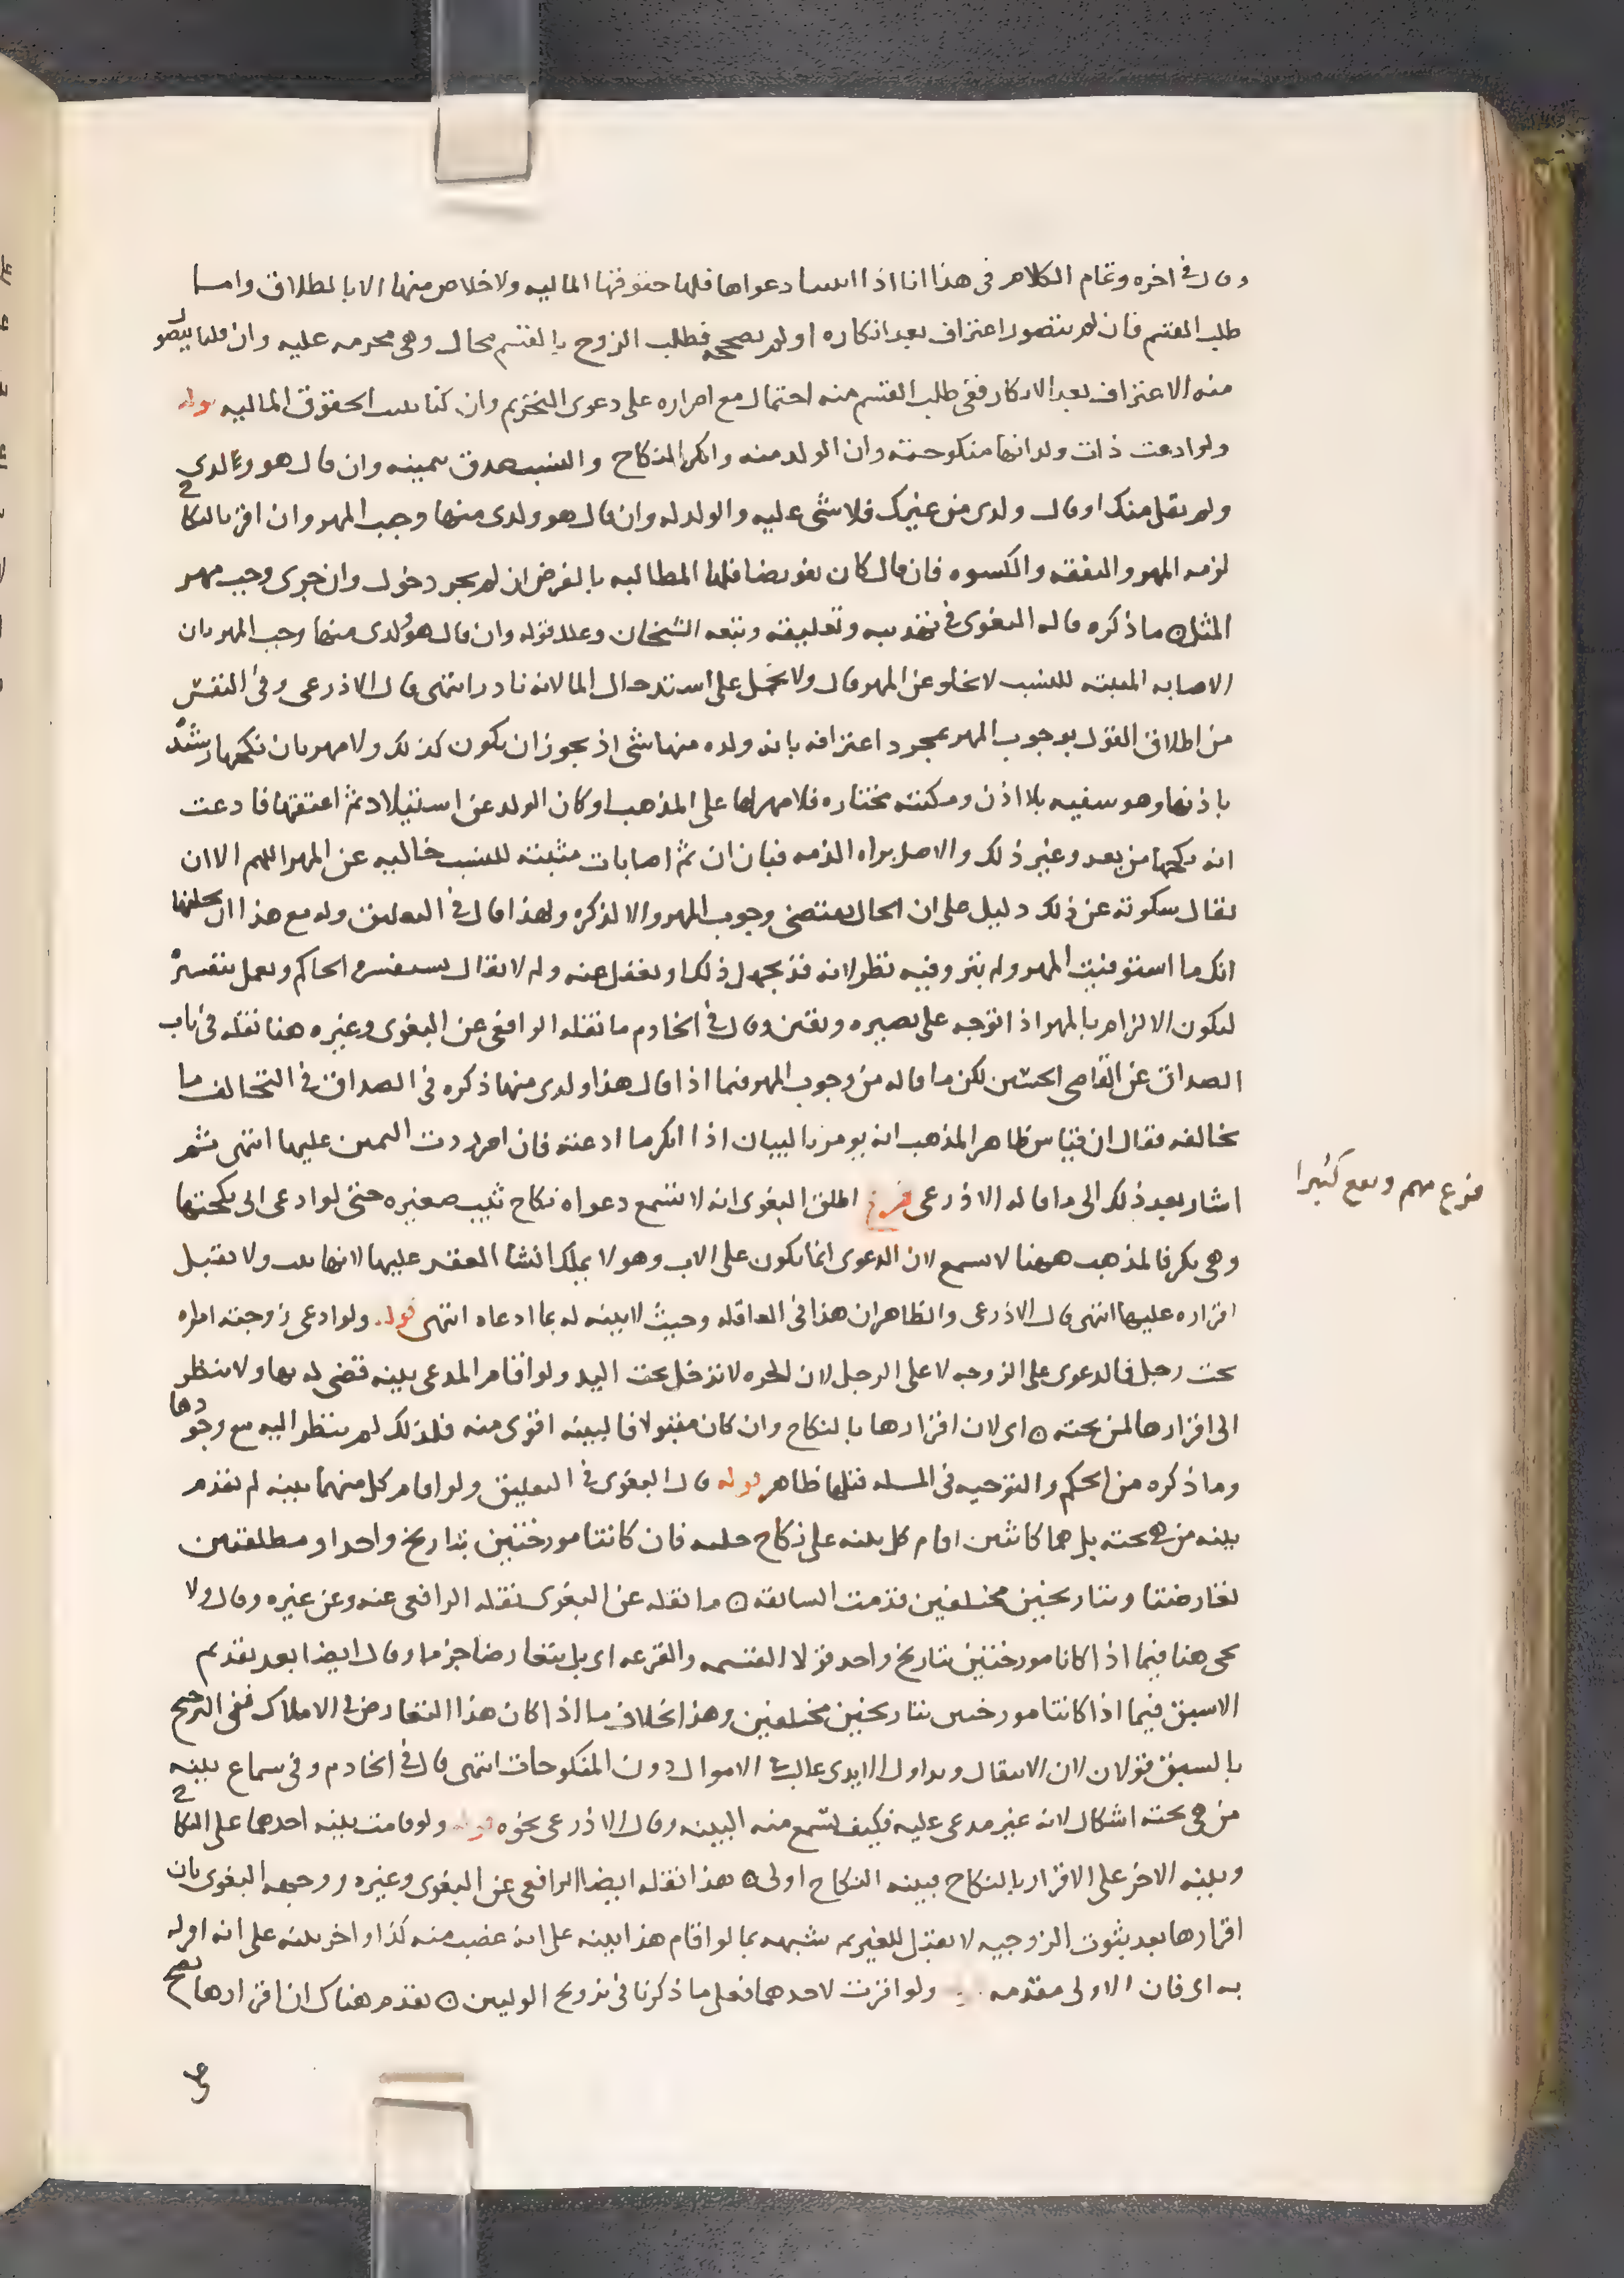 وقال في اخره وتمام الكلام في هذا انا اذا اثبتنا دعواها فلها حقوقها الماليه ولا خلاص منها الا بالطلاق واما
طلب القسم فان لم يتصور اعتراف بعد انكاره او لم نصححه فطلب الزوج بالقسم محال وهي محرمه عليه وان قلنا يتصور
منه الاعتراف بعد الانكار ففي طلب القسم منه احتمال مع اصراره على دعوى التحريم وان كنا نثبت الحقوق الماليه قوله
ولو ادعت ذات ولد انها منكوحته وان الولد منه وانكر النكاح والنسب صدق بيمينه وان قال هو ولدي
ولم يقل منك او قال ولدي من غيرك فلا شي عليه والولد له وان قال هو ولدي منها وجب المهر وان اقر بالنكاح
لزمه المهر والنفقه والكسوه فان قال كان تفويضا فلها المطالبه بالفرض ان لم يجر دخول وان جرى وجب مهر
المثل ۞ ما ذكره قاله البغوي في تهذيبه وتعليقه وتبعه الشيخان وعلل قوله وان قال هو ولدي منها وجب المهر بان
الاصابه المثبته للنسب لا تخلو عن المهر قال ولا يحمل على استدخال الما لانه نادر انتهى قال الاذرعي وفي النفس
من اطلاق القول بوجوب المهر بمجرد اعترافه بانه ولده منها شي اذ يجوز ان يكون كذلك ولا مهر بان نكحها رشيده
باذنها وهو سفيه بلا اذن ومكنته مختاره فلا مهر لها على المذهب او كان الولد عن استيلاد ثم اعتقها فادعت
انه نكحها من بعد وغير ذلك والاصل براه الذمه فبان ان ثم اصابات مثبته للنسب خاليه عن المهر اللهم الا ان
يقال سكوته عن ذلك دليل على ان الحال يقتضي وجوب المهر والا لذكره ولهذا قال في التعليق وله مع هذا ان يحلفها
انك ما استوفيت المهر ولم يثر وفيه نظر لانه قد يجهل ذلك او يغفل عنه ولم لا يقال يستفسره الحاكم ويعمل بتفسيره
ليكون الالزام بالمهر اذا توجه على بصيره ويقين وقال في الخادم ما نقله الرافعي عن البغوي وغيره هنا نقله في باب
الصداق عن القاضي الحسين لكن ما قاله من وجوب المهر فيما اذا قال هذا ولدي منها ذكره في الصداق في التحالف ما
يخالفه فقال ان قياس ظاهر المذهب انه يومر بالبيان اذا انكر ما ادعته فان اصر ردت اليمين عليها انتهى ثم
اشار بعد ذلك الى ما قاله الاذرعي فرع اطلق البغوي انه لا تسمع دعواه نكاح ثيب صغيره حتى لو ادعى اني نكحتها
وهي بكر فالمذهب ههنا لا تسمع لان الدعوى انما تكون على الاب وهو لا يملك انشا العقد عليها لانها ثيب ولا يقبل
اقراره عليها انتهى قال الاذرعي والظاهر ان هذا في العاقله وحيث لا بينه له بما ادعاه انتهى قوله ولو ادعى زوجته امراه
تحت رجل فالدعوى على الزوجه لا على الرجل لان الحره لا تدخل تحت اليد ولو اقام المدعي بينه قضي له بها ولا ينظر
الى اقرارها لمن تحته ۞ اي لان اقرارها بالنكاح وان كان مقبولا فالبينه اقوى منه فلذلك لم ينظر اليه مع وجودها
وما ذكره من الحكم والتوجيه في المسله قبلها ظاهر قوله قال البغوي في التعليق ولو اقام كل منهما بينه لم تقدم
بينه من هي تحته بل هما كاثنين اقام كل بينه على نكاح خليه فان كانتا مورختين بتاريخ واحد او مطلقتين
تعارضتا وبتاريخين مختلفين قدمت السابقه ۞ ما نقله عن البغوي نقله الرافعي عنه وعن غيره وقال ولا
يجي هنا فيما اذا كانا مورختين بتاريخ واحد قولا القسمه والقرعه اي بل يتعارضا جزما وقال ايضا بعد تقديم
الاسبق فيما اذا كانتا مورختين بتاريخين مختلفين وهذا بخلاف ما اذا كان هذا التعارض في الاملاك ففي الترجيح
بالسبق قولان لان الانتقال وتداول الايدي غالب في الاموال دون المنكوحات انتهى قال في الخادم وفي سماع بينه
من هي تحته اشكال لانه غير مدعى عليه فكيف تسمع منه البينه وقال الاذرعي نحوه قوله ولو قامت بينه احدهما على النكاح
وبينه الاخر على الاقرار بالنكاح فبينه النكاح اولى ۞ هذا نقله ايضا الرافعي عن البغوي وغيره ووجهه البغوي بان
اقرارها بعد ثبوت الزوجيه لا يقبل للغير ثم شبهه بما لو اقام هذا بينه على انه غصب منه كذا واخر بينه على انه اقر له
به اي فان الاولى مقدمه ولو اقرت لاحدهما فعلى ما ذكرنا في تزويج الوليين ۞ تقدم هناك ان اقرارها يصح
فرع مهم ويقع كثيرا